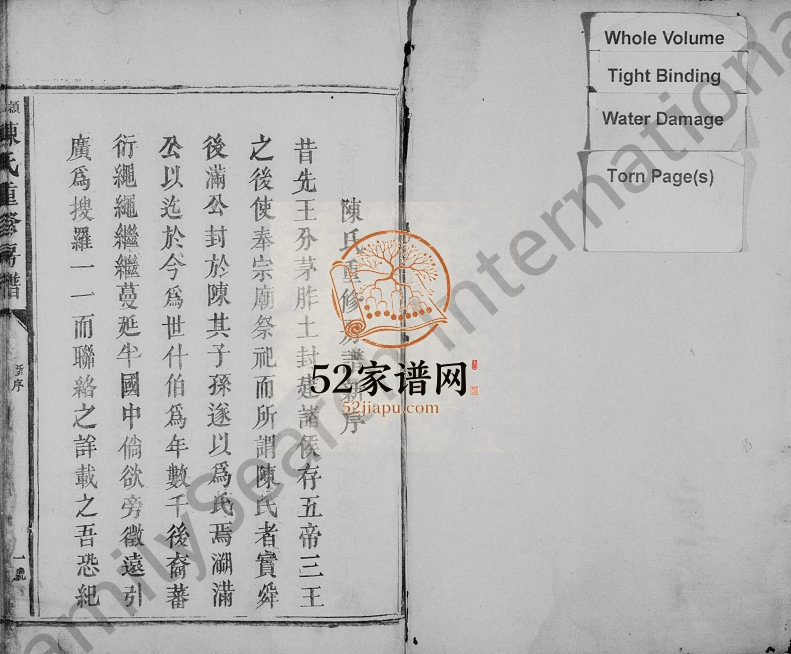 陳氏重修房譜新序
昔先王分茅胙土封建諸侯存五帝三王
之後使奉宗廟祭祀而所謂陳氏者實舜
後滿公封於陳其子孫遂以為氏焉溯滿
公以迄於今為世什伯為年數千後裔蕃
衍繩繩繼繼蔓延半國中倘欲旁徵遠引
廣為搜羅一一而聯絡之詳載之吾恐紀
陳氏重修房譜
新序
一號
Whole Volume
Tight Binding
Water Damage
Torn Page(s)
52家谱网
52jiapu.com
FamilySearch International